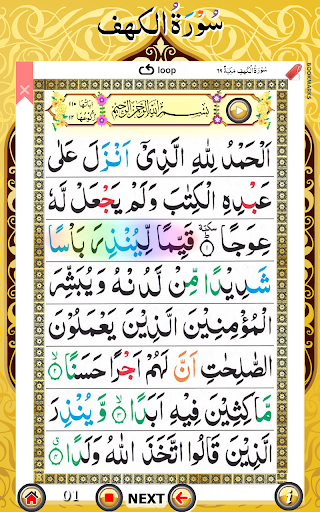 سُوْرَةُ الْكَهْف
loop
سُوْرَةُ الْكَهْفِ مَكِّيَّةٌ ٦٩
BOOKMARKS
بِسْمِ اللهِ الرَّحْمٰنِ الرَّحِيْمِ
اَلْحَمْدُ لِلّٰهِ الَّذِىْۤ اَنْزَلَ عَلٰى
عَبْدِهِ الْكِتٰبَ وَلَمْ يَجْعَلْ لَّهٗ
عِوَجًا ۜ ﴿۱﴾ قَيِّمًا لِّيُنْذِرَ بَاْسًا
شَدِيْدًا مِّنْ لَّدُنْهُ وَيُبَشِّرَ
الْمُؤْمِنِيْنَ الَّذِيْنَ يَعْمَلُوْنَ
الصّٰلِحٰتِ اَنَّ لَهُمْ اَجْرًا حَسَنًا ﴿۲﴾
مَّاكِثِيْنَ فِيْهِ اَبَدًا ﴿۳﴾ وَّيُنْذِرَ
الَّذِيْنَ قَالُوا اتَّخَذَ اللّٰهُ وَلَدًا ﴿۴﴾
01 NEXT i